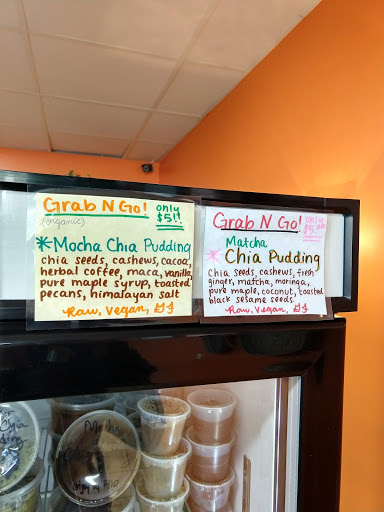 Grab N Go!
(organic)
only
$5!!
*Mocha Chia Pudding
chia seeds, cashews, cacao,
herbal coffee, maca, vanilla,
pure maple syrup, toasted
pecans, himalayan salt
Raw, Vegan, GF
Grab N Go!
only
$5
Matcha
*Chia Pudding
Chia seeds, cashews, fresh
ginger, matcha, moringa,
pure maple, coconut, toasted
black sesame seeds
Raw, Vegan, GF
Mocha